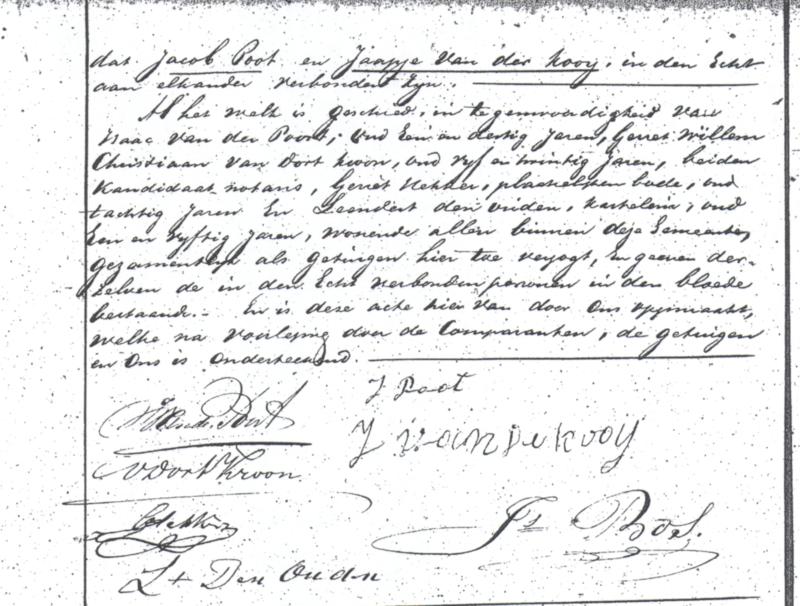 dat Jacob Poot en Jaapje van der Kooy, in den Echt
aan elkander verbonden zyn.
Al het welk is geschied, in tegenwoordigheid van
Isaac van der Poort, oud Een en dertig Jaren, Gerret Willem
Christiaan van Dort Kroon, oud vyf en twintig Jaren, beiden
Kandidaat notaris, Gerret Nekker, plaatselyken bode, oud
tachtig Jaren En Leendert den ouden, kastelein, oud
Een en vyftig Jaren, wonende allen binnen deze Gemeente,
gezamentlyk als getuigen hier toe verzogt, en geenen der-
zelven de in den Echt verbonden personen in den bloede
bestaande. - En is deze acte hier van door Ons opgemaakt,
welke na voorlezing door de Comparanten, de getuigen
en Ons is Onderteekend.
J Poot
vd Poort
J van De Kooy
v Dort Kroon.
GNekker
Js Bos.
Lt Den Ouden